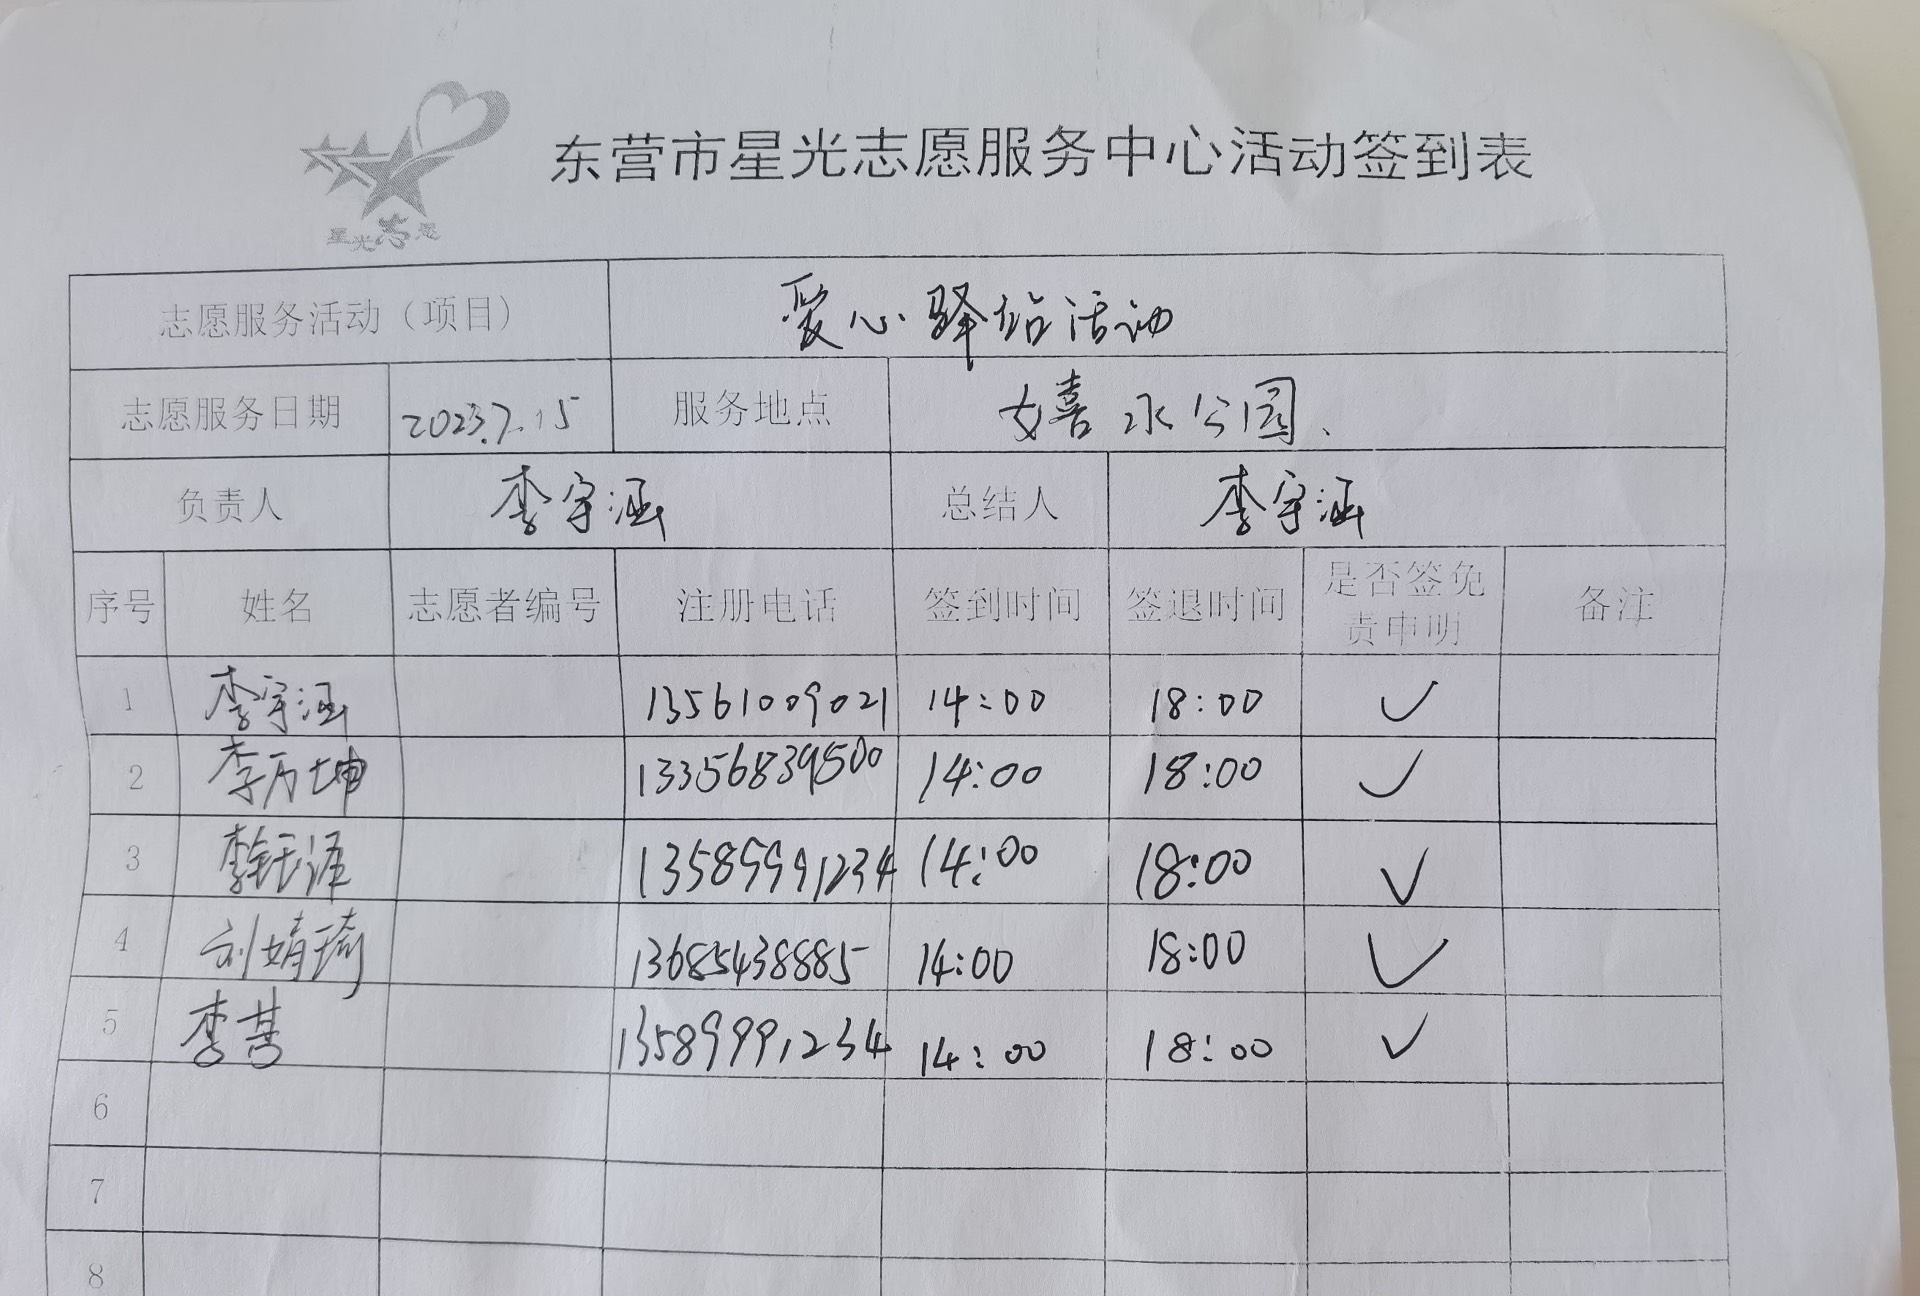 星光志愿
东营市星光志愿服务中心活动签到表
志愿服务活动（项目） 爱心驿站活动
志愿服务日期 2023.7.15 服务地点 嬉水公园、
负责人 李宇涵 总结人 李宇涵
序号 姓名 志愿者编号 注册电话 签到时间 签退时间 是否签免责申明 备注
1 李宇涵 13561009021 14:00 18:00 ✓
2 李万坤 13356839500 14:00 18:00 ✓
3 李钰泽 13589991234 14:00 18:00 ✓
4 刘婧琦 13685438885 14:00 18:00 ✓
5 李 13589991234 14:00 18:00 ✓
6
7
8